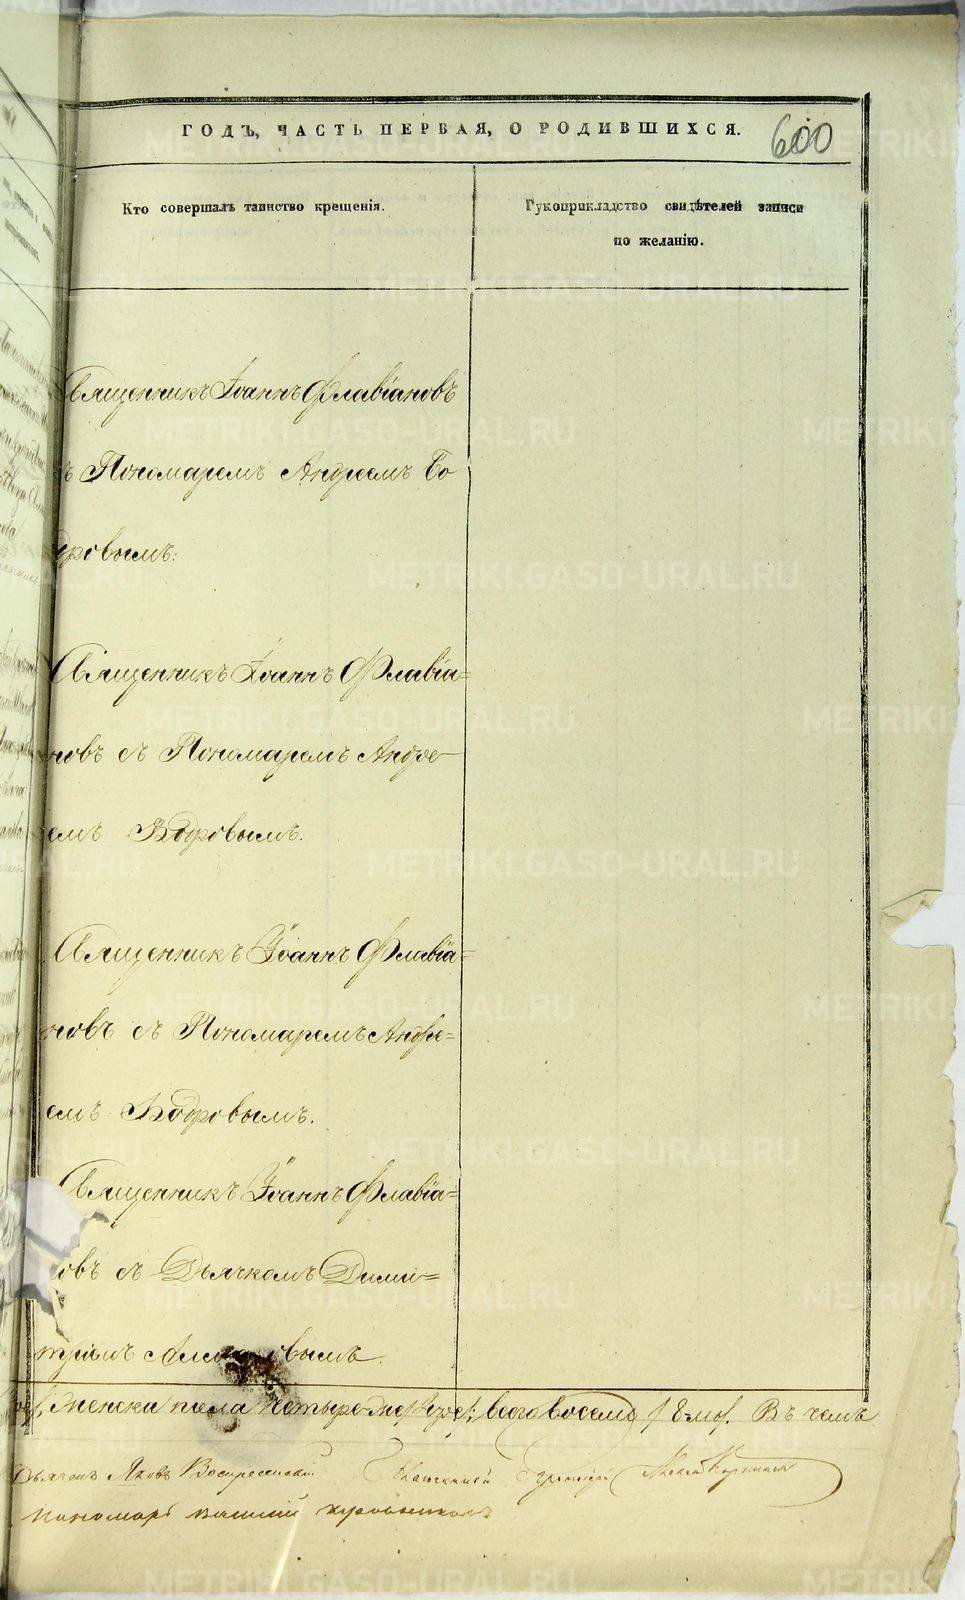 ГОДЪ, ЧАСТЬ ПЕРВАЯ, О РОДИВШИХСЯ.
600
Кто совершалъ таинство крещенія.
Рукоприкладство свидѣтелей записи
по желанію.
Священникъ Іоаннъ Флавіановъ
съ Пономаремъ Андреемъ Бо
дровымъ.
Священникъ Іоаннъ Флавіа=
новъ съ Пономаремъ Андре
емъ Бодровымъ.
Священникъ Іоаннъ Флавіа=
новъ съ Пономаремъ Андре=
емъ Бодровымъ.
Священникъ Іоаннъ Флавіа=
новъ съ Дьячкомъ Дими=
тріемъ
Женска пола четыре всего восемь /8 Въ чемъ
Дьячекъ Яковъ Воскресенскій
Пономарь
METRIKI.GASO-URAL.RU